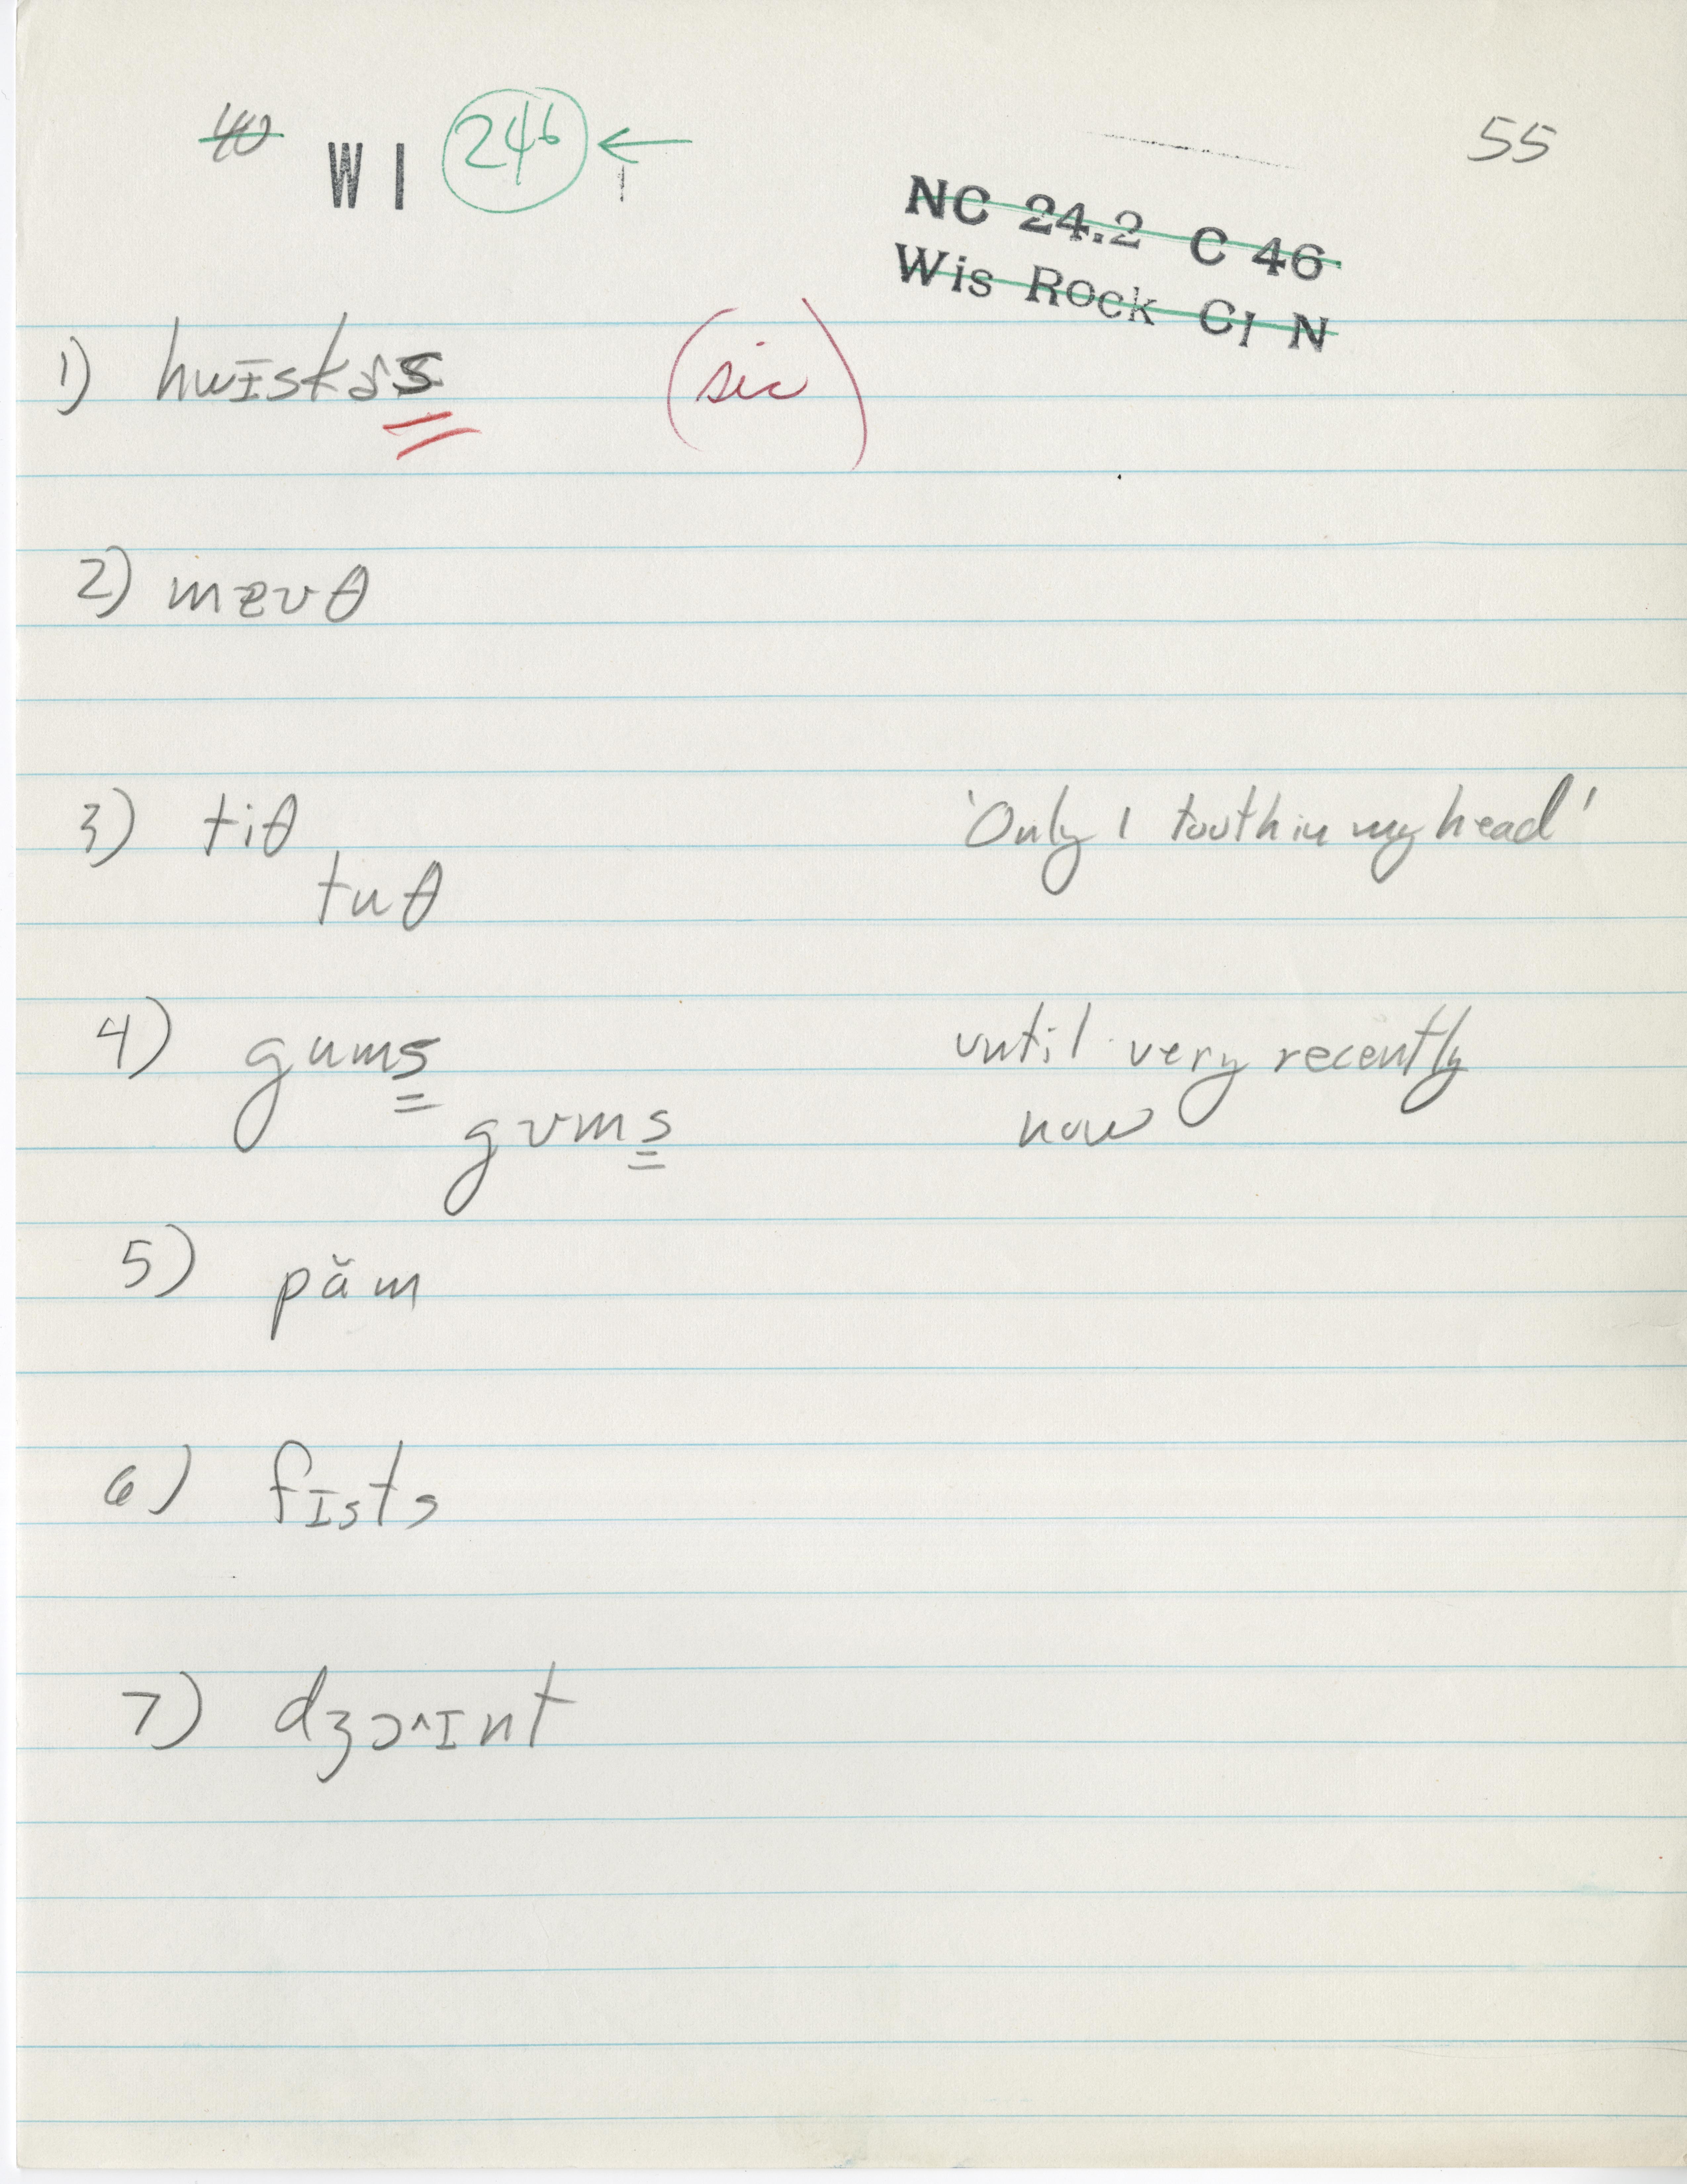 40 WI 246 ← 55
NC 24.2 C 46
Wis Rock Cl N
1) hwɪskɚs (sic)
2) mɛʊθ
3) tiθ 'Only 1 tooth in my head'
tuθ
4) gums until very recently
gʊms now
5) păm
6) fɪsts
7) dʒɔ^ɪnt